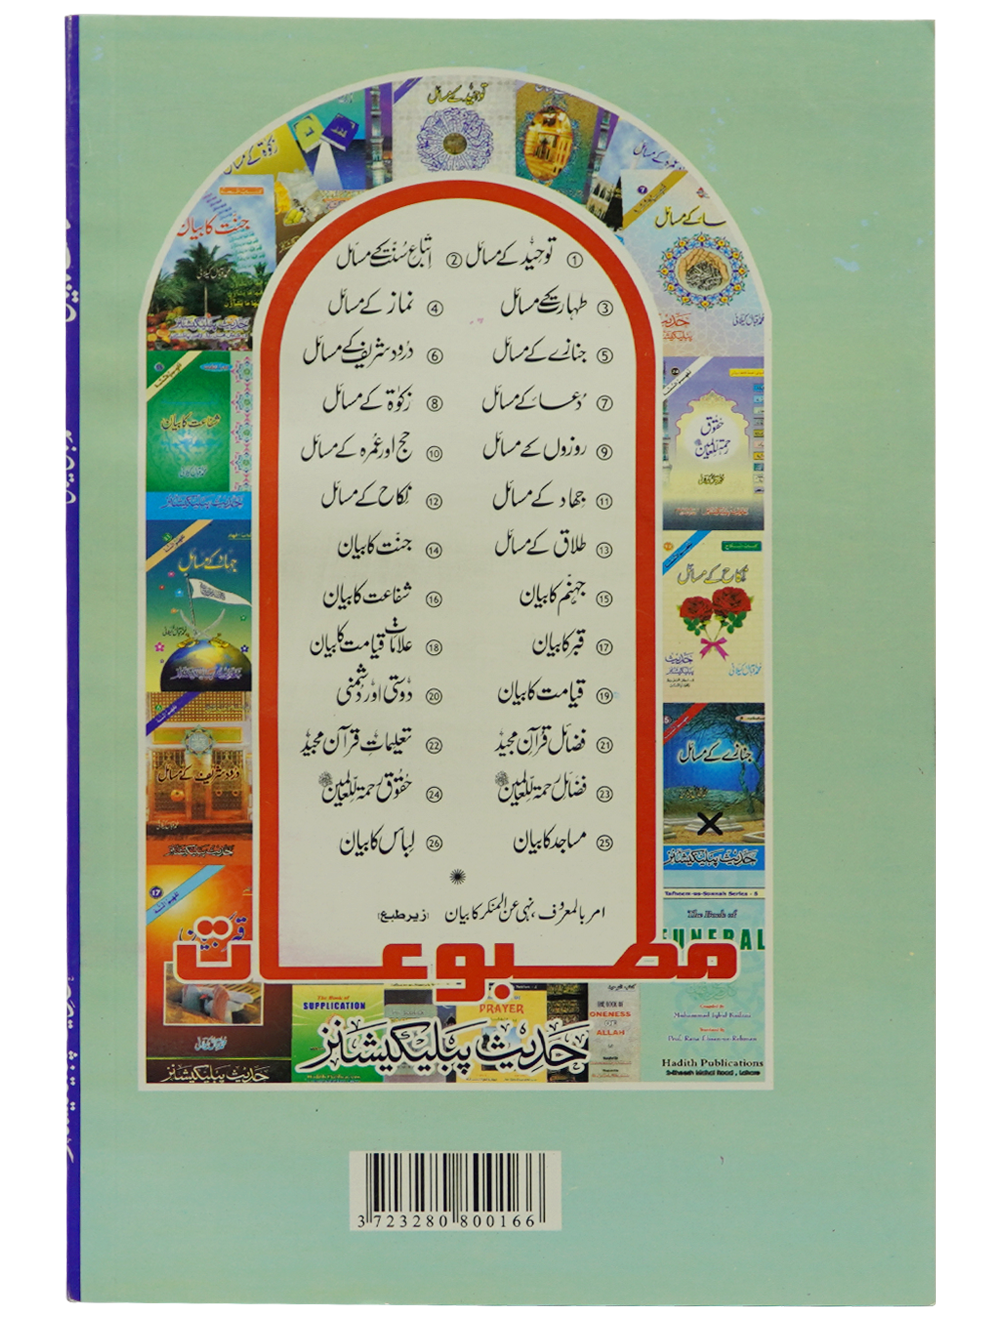 توحید کے مسائل
زکوٰۃ کے مسائل
جنت کا بیان
شفاعت کا بیان
جہاد کے مسائل
درود شریف کے مسائل
17
حدیث پبلیکیشنز
حقوق رحمۃ للعالمین
نکاح کے مسائل
جنازے کے مسائل
حدیث پبلیکیشنز
① توحید کے مسائل ② اتباعِ سنت کے مسائل
③ طہارت کے مسائل ④ نماز کے مسائل
⑤ جنازے کے مسائل ⑥ درود شریف کے مسائل
⑦ دُعا کے مسائل ⑧ زکوٰۃ کے مسائل
⑨ روزوں کے مسائل ⑩ حج اور عمرہ کے مسائل
⑪ جہاد کے مسائل ⑫ نکاح کے مسائل
⑬ طلاق کے مسائل ⑭ جنت کا بیان
⑮ جہنم کا بیان ⑯ شفاعت کا بیان
⑰ قبر کا بیان ⑱ علاماتِ قیامت کا بیان
⑲ قیامت کا بیان ⑳ دوستی اور دشمنی
㉑ فضائل قرآن مجید ㉒ تعلیماتِ قرآن مجید
㉓ فضائل رحمۃ للعالمین ﷺ ㉔ حقوق رحمۃ للعالمین ﷺ
㉕ مساجد کا بیان ㉖ لباس کا بیان
امر بالمعروف، نہی عن المنکر کا بیان (زیر طبع)
مطبوعات
حدیث پبلیکیشنز
Tafheem-us-Sunnah Series - 5
The Book of
FUNERAL
Hadith Publications
2-Sheesh Mahal Road, Lahore
The Book of
SUPPLICATION
PRAYER
THE BOOK OF
ONENESS
OF
ALLAH
3 723280 800166